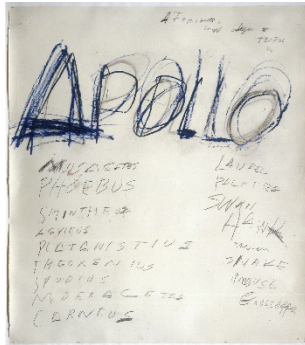 APOLLO
MUSAGETES
PHOEBUS
SMINTHEUS
AGYIEUS
PLATANISTIUS
THEOXENIUS
SPODIUS
MOERAGETES
CARNEUS
LAUREL
PALM TREE
SWAN
HAWK
SNAKE
MOUSE
GRASSHOPPER